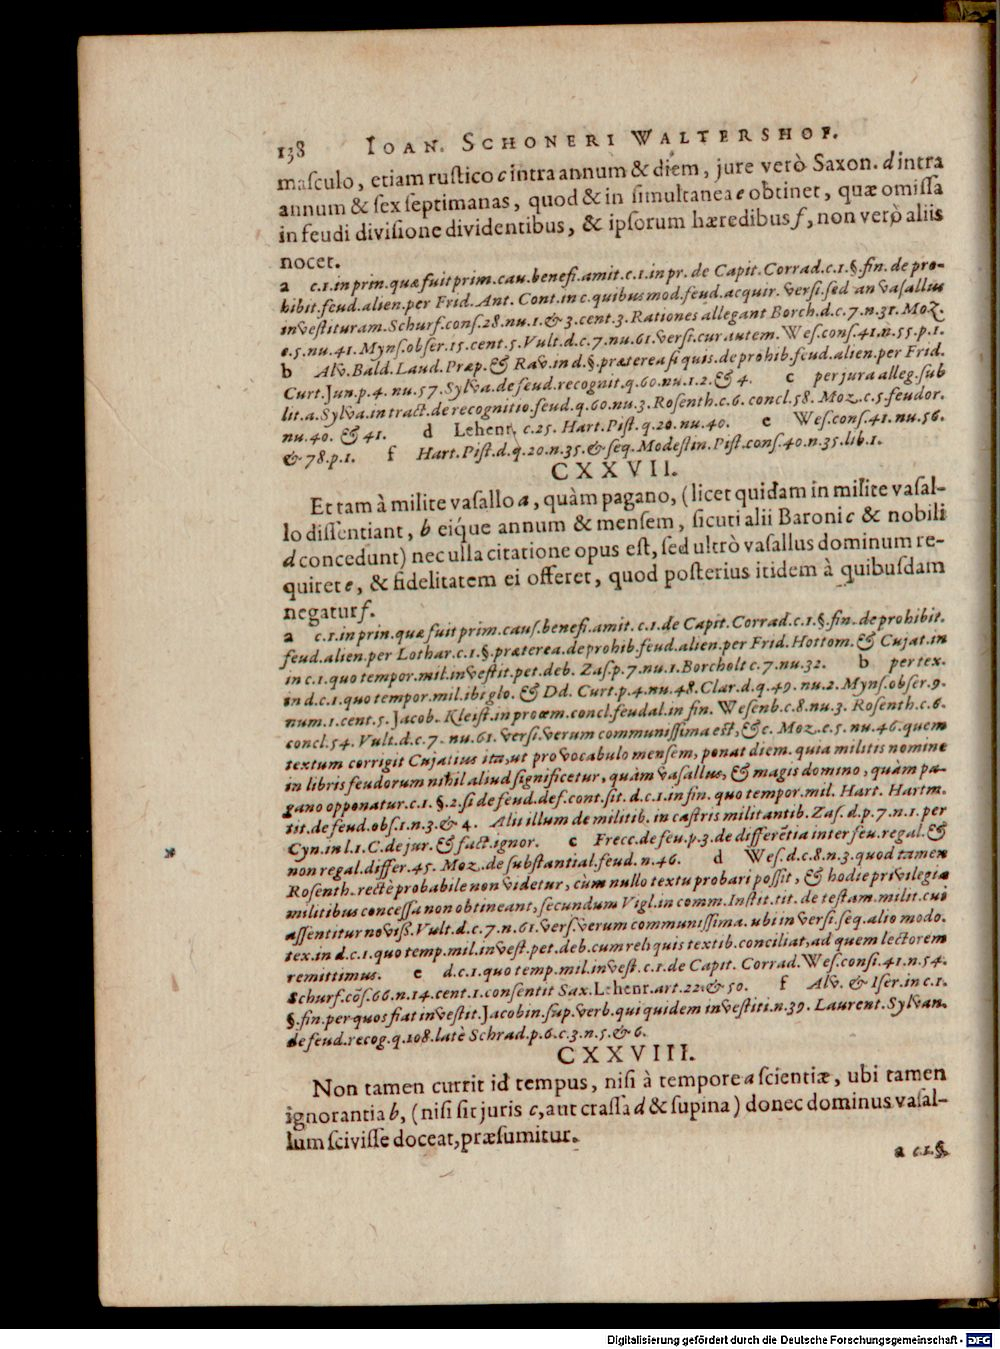 138 IOAN. SCHONERI WALTERSHOF.
masculo, etiam rustico c intra annum & diem, jure verò Saxon. d intra
annum & sex septimanas, quod & in simultanea e obtinet, quæ omissa
in feudi divisione dividentibus, & ipsorum hæredibus f, non verò aliis
nocet.
a c.1. in prin. quæ fuit prim. cau. benefi. amit. c.1. in pr. de Capit. Corrad. c.1. §. fin. de pro-
hibit. feud. alien. per Frid. Ant. Cont. in c. quibus mod. feud. acquir. versi. sed an vasallus
investituram. Schurf. cons. 28. nu. 1. & 3. cent. 3. Rationes allegant Borch. d. c. 7. n. 31. Moz.
c. 5. nu. 41. Myns. obser. 15. cent. 5. Vult. d. c. 7. nu. 61. versi. cur autem. Wes. cons. 41. n. 55. p. 1.
b Alv. Bald. Laud. Præp. & Rav. in d. §. præterea si quis. de prohib. feud. alien. per Frid.
Curt. Jun. p. 4. nu. 57. Sylva. de feud. recognit. q. 60. nu. 1. 2. & 4. c per jura alleg. sub
lit. a. Sylva. in tract. de recognitio. feud. q. 60. nu. 3. Rosenth. c. 6. concl. 58. Moz. c. 5. feudor.
nu. 40. & 41. d Lehenr. c. 25. Hart. Pist. q. 20. nu. 40. e Wes. cons. 41. nu. 56.
& 78. p. 1. f Hart. Pist. d. q. 20. n. 35. & seq. Modestin. Pist. cons. 40. n. 35. lib. 1.
CXXVII.
Et tam à milite vasallo a, quàm pagano, (licet quidam in milite vasal-
lo dissentiant, b eíque annum & mensem, sicuti alii Baroni c & nobili
d concedunt) nec ulla citatione opus est, sed ultrò vasallus dominum re-
quiret e, & fidelitatem ei offeret, quod posterius itidem à quibusdam
negatur f.
a c.1. in prin. quæ fuit prim. caus. benefi. amit. c.1. de Capit. Corrad. c.1. §. fin. de prohibit.
feud. alien. per Lothar. c.1. §. præterea. de prohib. feud. alien. per Frid. Hottom. & Cujat. in
in c.1. quo tempor. mil. investit. pet. deb. Zas. p. 7. nu. 1. Borcholt c. 7. nu. 32. b per tex.
in d. c.1. quo tempor. mil. ibi glo. & Dd. Curt. p. 4. nu. 48. Clar. d. q. 49. nu. 2. Myns. obser. 9.
num. 1. cent. 5. Jacob. Kleist. in proœm. concl. feudal. in fin. Wesenb. c. 8. nu. 3. Rosenth. c. 6.
concl. 54. Vult. d. c. 7. nu. 61. versi. verum communissima est, &c. Moz. c. 5. nu. 46. quem
textum corrigit Cujatius ita, ut pro vocabulo mensem, ponat diem. quia militis nomine
in libris feudorum nihil aliud significetur, quàm vasallus, & magis domino, quàm pa-
gano opponatur. c.1. §. 2. si de feud. def. cont. sit. d. c.1. in fin. quo tempor. mil. Hart. Hartm.
tit. de feud. obs. 1. n. 3. & 4. Alii illum de militib. in castris militantib. Zas. d. p. 7. n. 1. per
Cyn. in l. 1. C. de jur. & fact. ignor. c Frecc. de feu. p. 3. de differētia inter feu. regal. &
non regal. differ. 45. Moz. de substantial. feud. n. 46. d Wes. d. c. 8. n. 3. quod tamen
Rosenth. rectè probabile non videtur, cùm nullo textu probari possit, & hodie privilegia
militibus concessa non obtineant, secundum Vigl. in comm. Instit. tit. de testam. milit. cui
assentitur noviß. Vult. d. c. 7. n. 61. vers. verum communissima. ubi in versi. seq. alio modo.
tex. in d. c.1. quo temp. mil. invest. pet. deb. cum reliquis textib. conciliat, ad quem lectorem
remittimus. e d. c.1. quo temp. mil. invest. c.1. de Capit. Corrad. Wes. consi. 41. n. 54.
Schurf. cōs. 66. n. 14. cent. 1. consentit Sax. Lehenr. art. 22. & 50. f Alv. & Iser. in c.1.
§. fin. per quos fiat investit. Jacobin. sup. verb. qui quidem investiti. n. 39. Laurent. Sylvan.
de feud. recog. q. 108. latè Schrad. p. 6. c. 3. n. 5. & 6.
CXXVIII.
Non tamen currit id tempus, nisi à tempore a scientiæ, ubi tamen
ignorantia b, (nisi sit juris c, aut crassa d & supina) donec dominus vasal-
lum scivisse doceat, præsumitur.
a c.1. §.
Digitalisierung gefördert durch die Deutsche Forschungsgemeinschaft - DFG